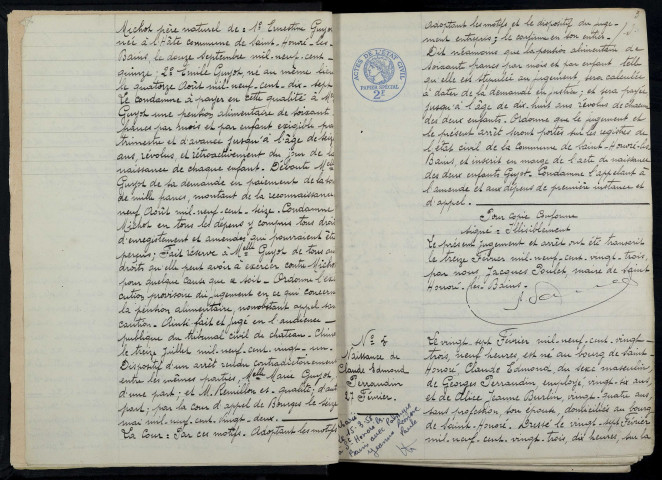 Michot père naturel de : 1º Ernestine Guyot
née à l'Hâte commune de Saint-Honoré-les-
Bains, le douze Septembre mil-neuf-cent-
quinze ; 2º Emile Guyot né au même lieu
le quatorze Août mil-neuf-cent-dix-sept
Le condamne à payer en cette qualité à Melle
Guyot une pension alimentaire de soixante
francs par mois et par enfant exigible par
trimestre et d'avance jusqu'à l'âge de seize
ans, révolus, et rétroactivement du jour de la
naissance de chaque enfant. Déboute Melle
Guyot de sa demande en paiement de la somme
de mille francs, montant de la reconnaissance
neuf Août mil-neuf-cent-seize. Condamne
Michot en tous les dépens y compris tous droits
d'enregistrement et amendes qui pourraient être
perçus ; Fait réserve à Melle Guyot de tous au
droits qu'elle peut avoir à exercer contre Michot
pour quelque cause que ce soit. Ordonne l'exé
cution provisoire du jugement en ce qui concerne
la pension alimentaire, nonobstant appel san
caution. Ainsi fait et jugé en l'audience
publique du tribunal civil de Chateau-Chinon
le treize Juillet mil-neuf-cent-vingt-un.
Dispositif d'un arrêt rendu contradictoirement
entre les mêmes parties, Melle Marie Guyot,
d'une part ; et M. Remillon es-qualité, d'autre
part ; par la cour d'appel de Bourges le seize
mai mil-neuf-cent-vingt-deux.
La Cour : Par ces motifs. Adoptant les motifs
3
ACTES DE L'ÉTAT CIVIL
PAPIER SPÉCIAL
2F
Adoptant les motifs et le dispositif du juge-
ment entrepris ; le confirme en son entier.
Dit néanmoins que la pension alimentaire de
soixante francs par mois et par enfant telle
qu'elle est stipulée au jugement, sera calculée
à dater de la demande en justice ; et sera payée
jusqu'à l'âge de dix-huit ans révolus de chacun
des deux enfants. Ordonne que le jugement et
le présent arrêt seront portés sur les registres de
l'état civil de la Commune de Saint-Honoré-les
Bains, et inscrit en marge de l'acte de naissance
des deux enfants Guyot. Condamne l'appelant à
l'amende et aux dépens de première instance et
d'appel.
Pour copie conforme
signé : Illisiblement
Le présent jugement et arrêt ont été transcrit
le treize Février mil-neuf-cent-vingt-trois,
par nous Jacques Poulet, maire de Saint
Honoré-les-Bains.
Nº 7
Naissance de
Claude Edmond
Perraudin
27 Février.
15-3-58
St Honoré les
Bains avec
Jeanne
Paule
Le vingt-sept Février mil-neuf-cent-vingt-
trois, neuf heures est né au bourg de Saint-
Honoré, Claude Edmond, du sexe masculin,
de Georges Perraudin employé, vingt-six ans,
et de Alice Jeanne Burlin, vingt-quatre ans,
sans profession, son épouse, domiciliés au bourg
de Saint-Honoré. Dressé le vingt-sept Février
mil-neuf-cent-vingt-trois, dix heures, sur la